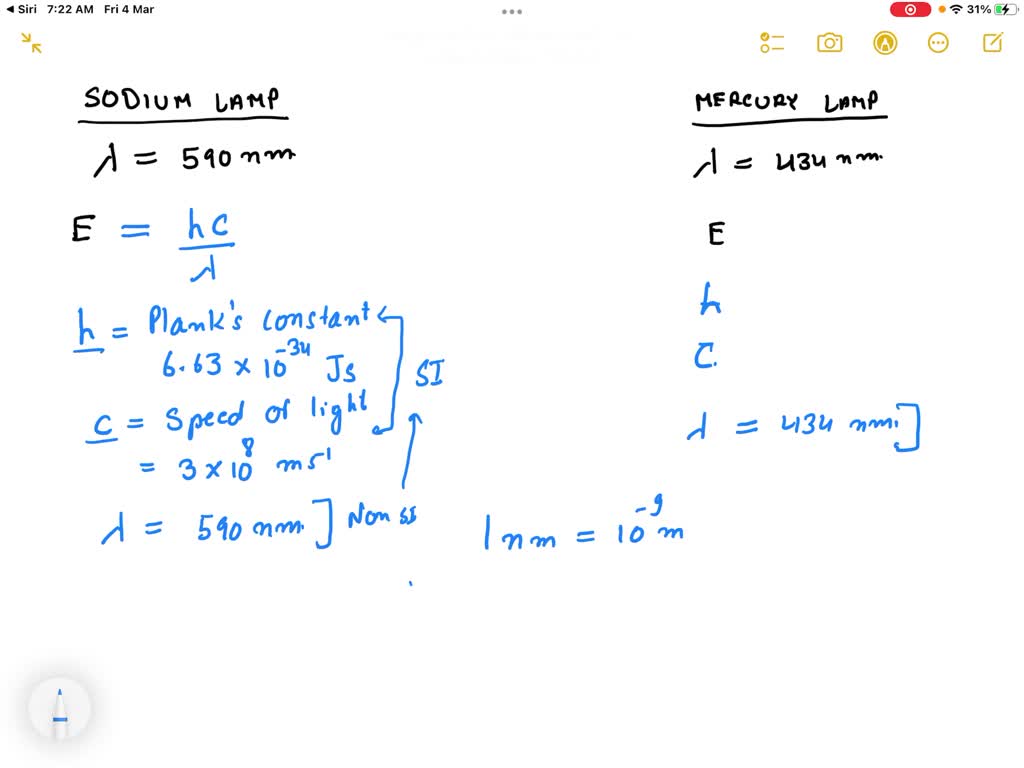 Siri 7:22 AM Fri 4 Mar
31%
SODIUM LAMP
λ = 590 nm
E = hc/λ
h = Plank's constant
6.63 × 10⁻³⁴ Js
SI
c = Speed of light
= 3 × 10⁸ ms⁻¹
λ = 590 nm ] Non SI
1 nm = 10⁻⁹ m
MERCURY LAMP
λ = 434 nm
E
h
C
λ = 434 nm ]